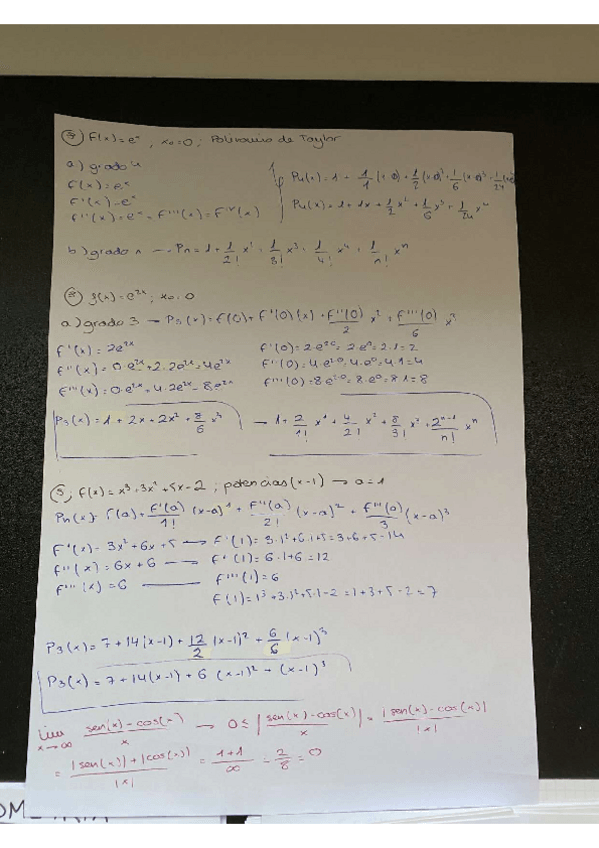 7) f(x)=eˣ, x₀=0; Polinomio de Taylor
a) grado 4
f(x)=eˣ
f'(x)=eˣ
f''(x)=eˣ=f'''(x)=f^IV(x)
P₄(x)=1+1/1(x-0)+1/2(x-0)²+1/6(x-0)³+1/24(x-0)⁴
P₄(x)=1+1x+1/2 x²+1/6 x³+1/24 x⁴
b) grado n → Pn=1+1/2! x²+1/3! x³+1/4! x⁴+1/n! xⁿ
8) f(x)=e²ˣ; x₀=0
a) grado 3 → P₃(x)=f(0)+f'(0)(x)+f''(0)/2 x²+f'''(0)/6 x³
f'(x)=2e²ˣ f'(0)=2·e²·⁰=2·e⁰=2·1=2
f''(x)=0·e²ˣ+2·2e²ˣ=4e²ˣ f''(0)=4·e²·⁰=4·e⁰=4·1=4
f'''(x)=0·e²ˣ+4·2e²ˣ=8e²ˣ f'''(0)=8·e²·⁰=8·e⁰=8·1=8
P₃(x)=1+2x+2x²+8/6 x³ → 1+2/1! x¹+4/2! x²+8/3! x³+
f(x)=x³+3x²+5x-2; potencias (x-1) → a=1
Pn(x)=f(a)+f'(a)/1! (x-a)¹+f''(a)/2! (x-a)²+f'''(a)/3 (x-a)³
f'(x)=3x²+6x+5 → f'(1)=3·1²+6·1+5=3+6+5=14
f''(x)=6x+6 → f''(1)=6·1+6=12
f'''(x)=6 — f'''(1)=6
f(1)=1³+3·1²+5·1-2=1+3+5-2=7
P₃(x)=7+14(x-1)+12/2 (x-1)²+6/6 (x-1)³
P₃(x)=7+14(x-1)+6(x-1)²+(x-1)³
lim x→∞ sen(x)-cos(x)/x → 0≤|sen(x)-cos(x)/x|=|sen(x)-cos(x)|/|x|
=|sen(x)|+|cos(x)|/|x|=1+1/∞=2/8=0